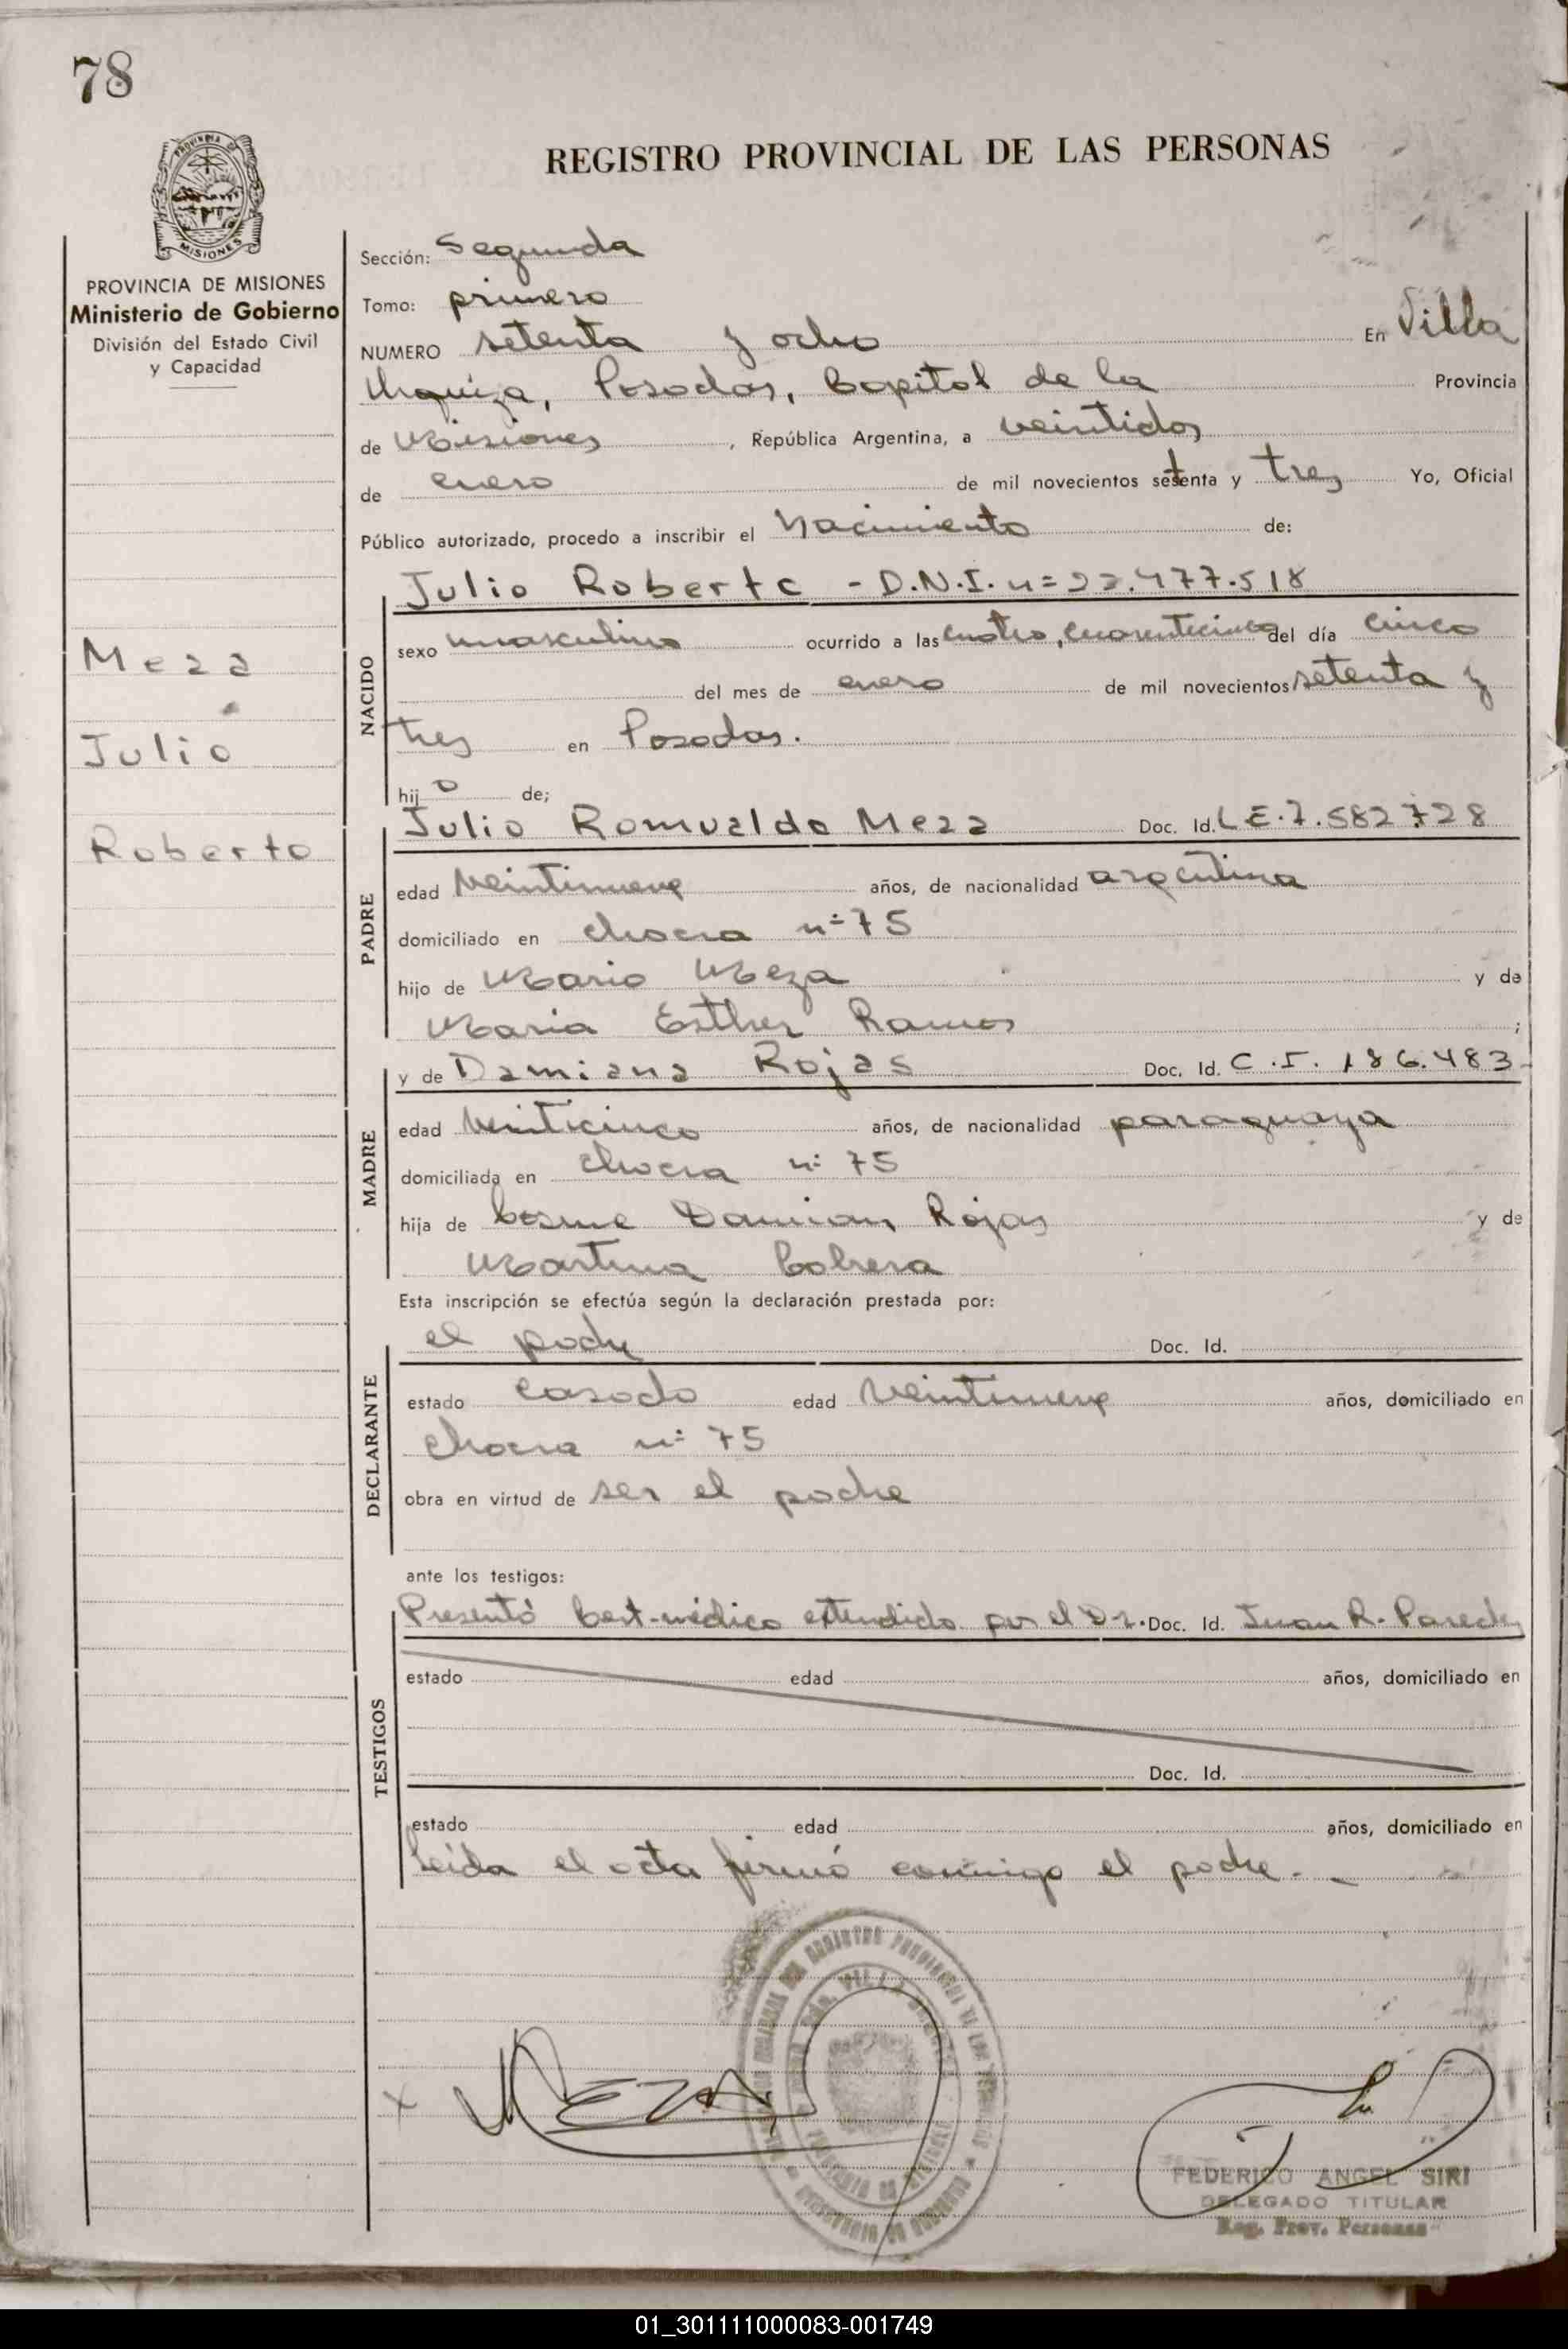 78
PROVINCIA DE
MISIONES
REGISTRO PROVINCIAL DE LAS PERSONAS
PROVINCIA DE MISIONES
Ministerio de Gobierno
División del Estado Civil
y Capacidad
Meza
Julio
Roberto
Sección: Segunda
Tomo: primero
NUMERO setenta y ocho En Villa
Urquiza, Posadas, Capital de la Provincia
de Misiones, República Argentina, a veintidos
de enero de mil novecientos setenta y tres Yo, Oficial
Público autorizado, procedo a inscribir el Nacimiento de:
NACIDO
Julio Roberto - D.N.I. n= 22.477.518
sexo masculino ocurrido a las cuatro, cuarenticinco del día cinco
del mes de enero de mil novecientos setenta y
tres en Posadas.
hijo de;
PADRE
Julio Romualdo Meza Doc. Id. L E. 7.582.728
edad veintinueve años, de nacionalidad argentina
domiciliado en chacra n= 75
hijo de Mario Meza y de
Maria Esther Ramos ;
MADRE
y de Damiana Rojas Doc. Id. C.I. 186.483-
edad veinticinco años, de nacionalidad paraguaya
domiciliada en chacra n= 75
hija de Cosme Damian Rojas y de
Martina Cabrera
Esta inscripción se efectúa según la declaración prestada por:
DECLARANTE
el padre Doc. Id.
estado casado edad veintinueve años, domiciliado en
chacra n= 75
obra en virtud de ser el padre
ante los testigos:
TESTIGOS
Presentó Cert-médico extendido por el Dr. Doc. Id. Juan R. Paredes
estado edad años, domiciliado en
Doc. Id.
estado edad años, domiciliado en
Leida el acta firmó conmigo el padre. -
x MEZA
FEDERICO ANGEL SIRI
DELEGADO TITULAR
Reg. Prov. Personas
01_301111000083-001749